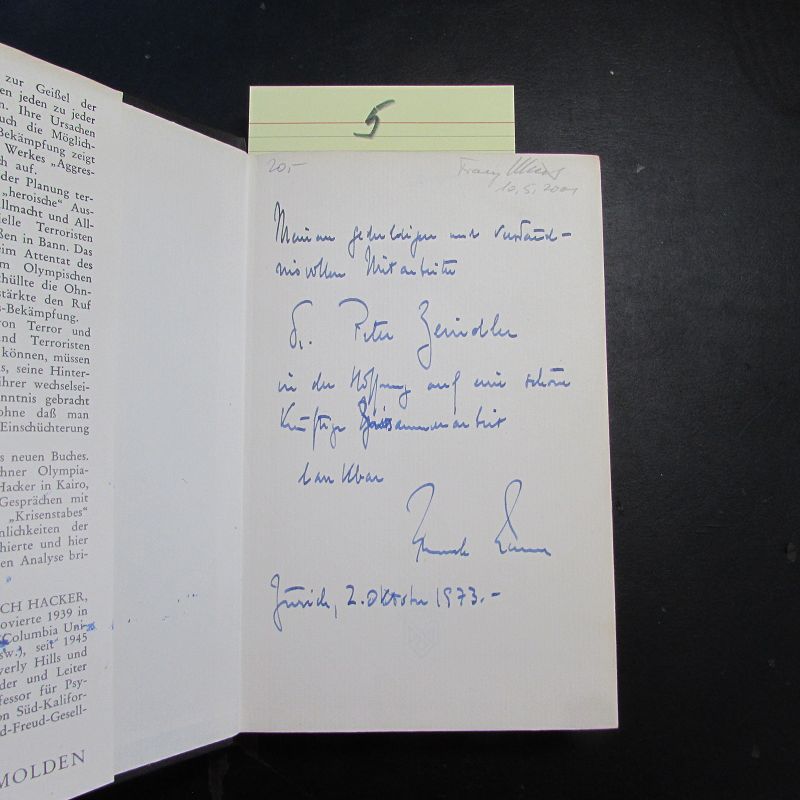 zur Geißel der
en jeden zu jeder
h. Ihre Ursachen
uch die Möglich-
Bekämpfung zeigt
Werkes „Aggres-
ch auf.
der Planung ter-
„heroische“ Aus-
llmacht und All-
ielle Terroristen
ßen in Bann. Das
eim Attentat des
m Olympischen
schüllte die Ohn-
stärkte den Ruf
s-Bekämpfung.
von Terror und
und Terroristen
können, müssen
s, seine Hinter-
ihrer wechselsei-
nntnis gebracht
ohne daß man
Einschüchterung
s neuen Buches.
hner Olympia-
Hacker in Kairo,
Gesprächen mit
„Krisenstabes“
nlichkeiten der
hierte und hier
en Analyse bri-
CH HACKER,
ovierte 1939 in
Columbia Uni-
sw.), seit 1945
verly Hills und
der und Leiter
fessor für Psy-
on Süd-Kalifor-
d-Freud-Gesell-
MOLDEN
5
20,-
Franz
10.5.2001
Meinem geduldigen und verständ-
nisvollen Mitarbeiter
Dr. Peter Zeindler
in der Hoffnung auf eine schöne
künftige Zusammenarbeit
dankbar
Zürich, 2. Oktober 1973.-